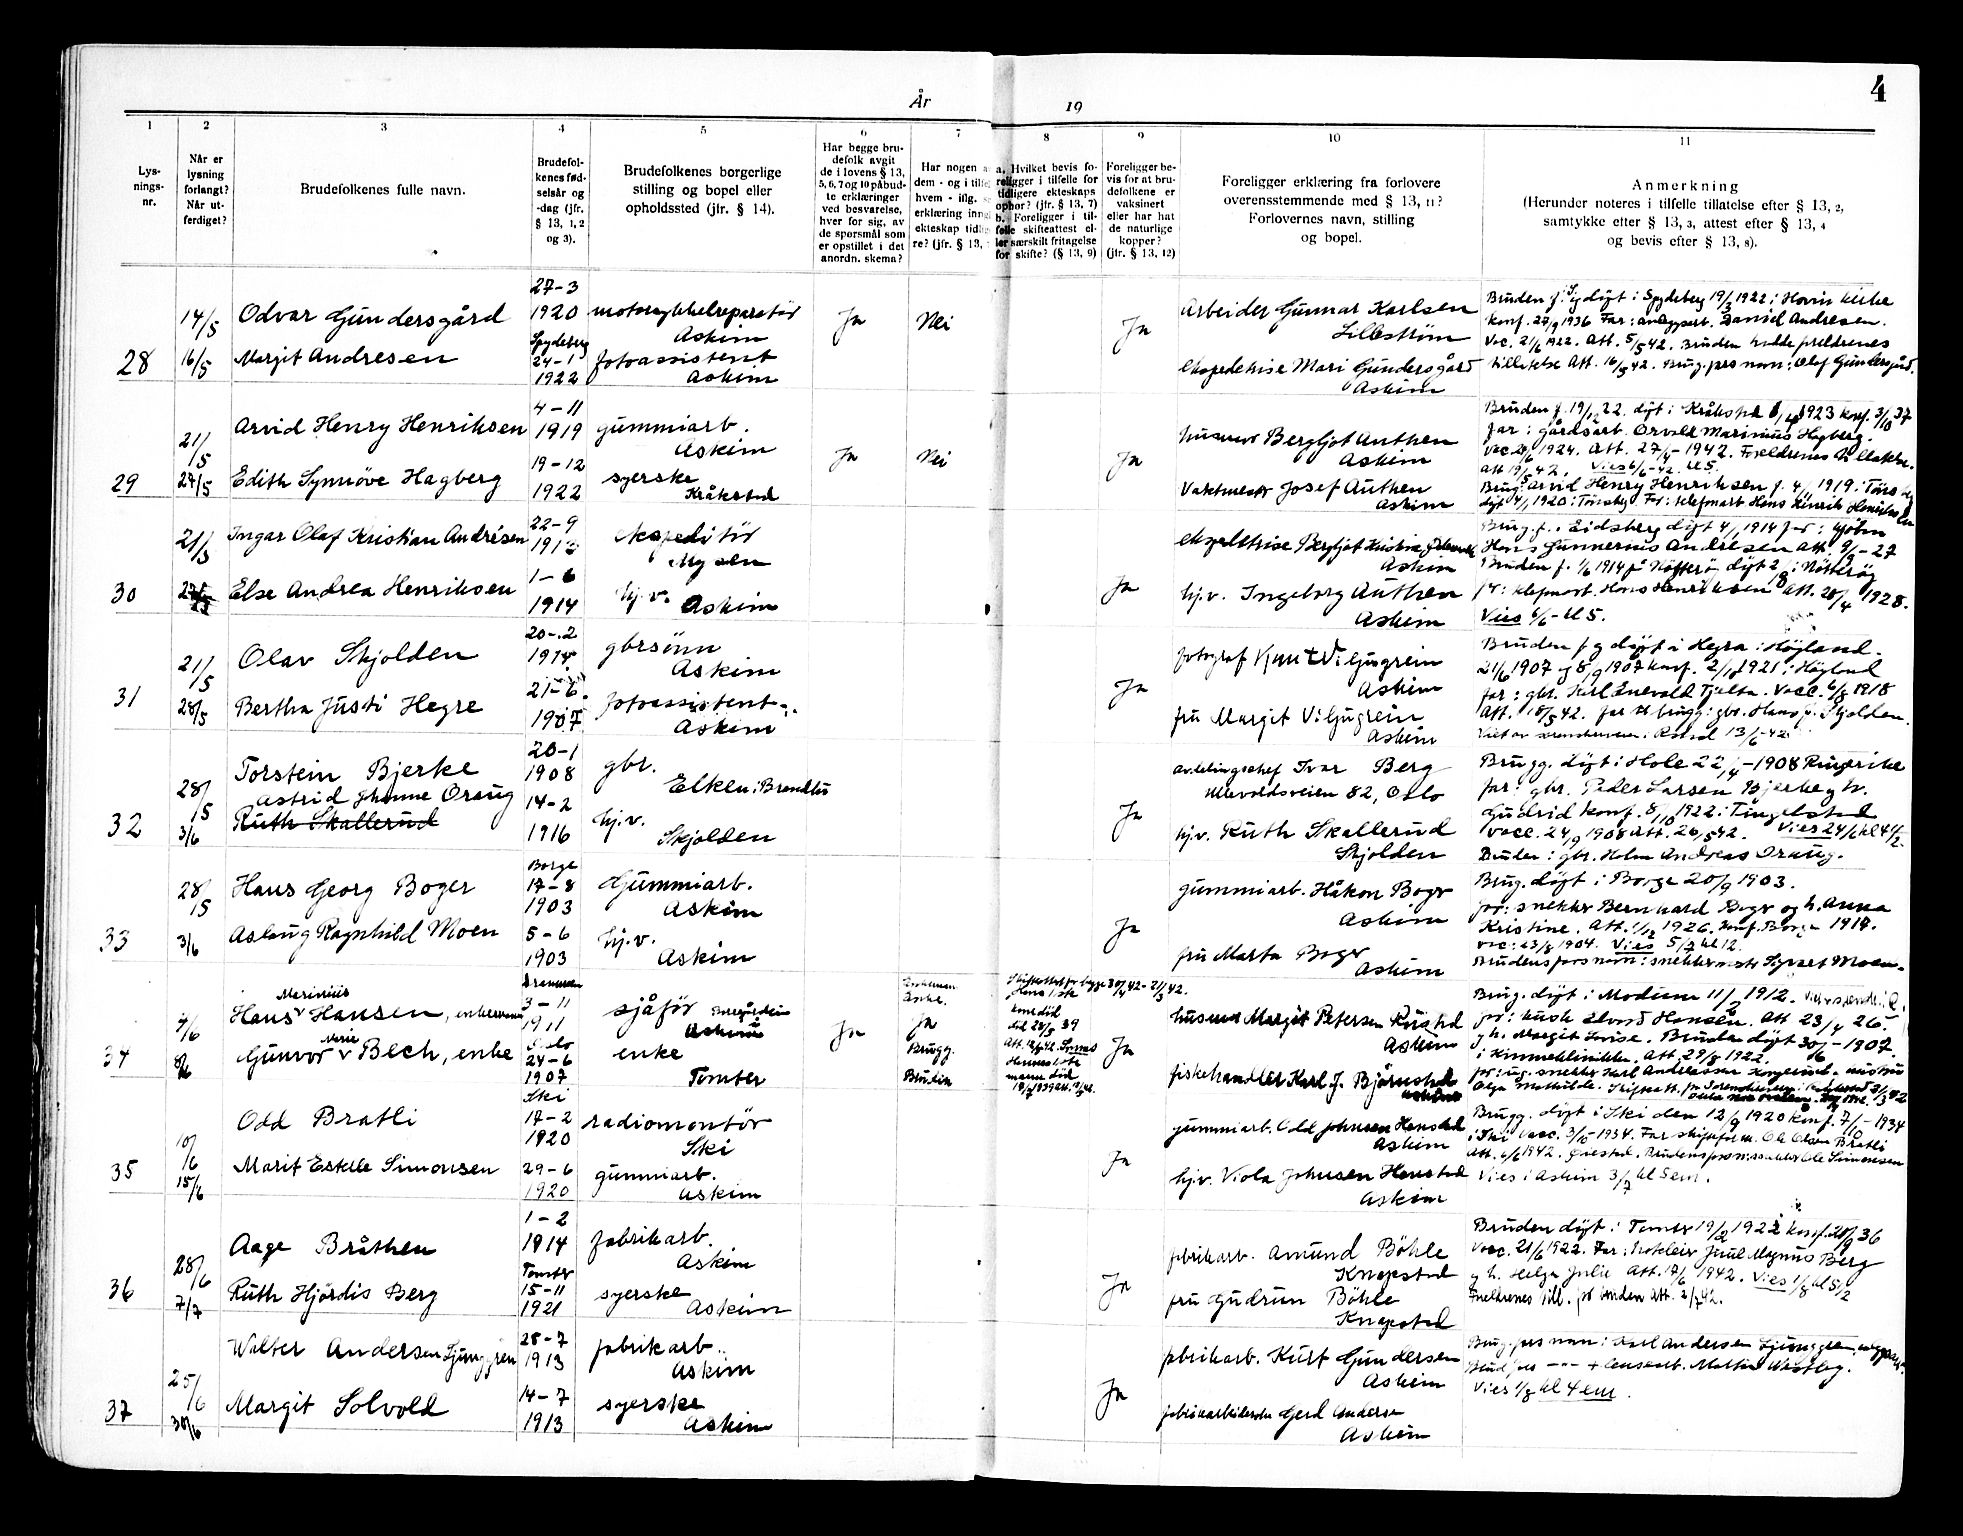 År 19
4
1 2 3 4 5 6 7 8 9 10 11
Lys-
nings-
nr.
Når er
lysning
forlangt?
Når ut-
ferdiget?
Brudefolkenes fulle navn.
Brudefol-
kenes fød-
selsår og
-dag (jfr.
§ 13, 1, 2
og 3).
Brudefolkenes borgerlige
stilling og bopel eller
opholdssted (jfr. § 14).
Har begge bru-
defolk avgit
de i lovens § 13,
5, 6, 7 og 10 påbud-
te erklæringer
ved besvarelse,
hver for sig, av
de spørsmål som
er opstillet i det
anordn. skema?
Har nogen a
dem - og i tilfe
hvem - iflg.
erklæring inng
ekteskap tidlig
re? (jfr. § 13,
a. Hvilket bevis fo-
religger i tilfelle for
tidligere ekteskaps
ophør? (jfr. § 13, 7)
b. Foreligger i til-
felle skifteattest el-
ler særskilt fritagelse
for skifte? (§ 13, 9)
Foreligger be-
vis for at bru-
defolkene er
vaksinert
eller har hat
de naturlige
kopper?
(jfr. § 13, 12)
Foreligger erklæring fra forlovere
overensstemmende med § 13, 11?
Forlovernes navn, stilling
og bopel.
Anmerkning
(Herunder noteres i tilfelle tillatelse efter § 13, 2,
samtykke efter § 13, 3, attest efter § 13, 4
og bevis efter § 13, 8).
28
14/5
16/5
Odvar Gundersgård
Margit Andresen
27-3
1920
Spydeberg
24-1
1922
motorsykkelreparatör
Askim
fotoassistent
Askim
Ja
Nei
Ja
Arbeider Gunnar Karlsen
Lillestrøm
ekspeditrise Mari Gundersgård
Askim
Bruden f. og döpt i Spydeberg 19/3 1922 i Hovin kirke
Konf. 27/9 1936 Far: Daniel Andresen.
Vac. 21/6 1922. Att. 5/5 42. Bruden hadde foreldrenes
tillatelse Att. 16/5 42. Brug. fars navn: Olaf Gundersgård.
29
21/5
27/5
Arvid Henry Henriksen
Edith Synnöve Hagberg
4-11
1919
19-12
1922
gummiarb.
Askim
syerske
Kråkstad
Ja
Nei
Ja
Bergljot Authen
Askim
Vaktmestr Josef Authen
Askim
Bruden f. 19/12 22. döpt i Kråkstad 1923 konf. 3/10 37
far: gårdsarb. Marinius Hagberg.
1924. Att. 27/4-1942. Foreldrenes tillatelse.
att 19/5 42. Vies 6/6-42 kl 5.
Brug. Arvid Henry Henriksen f. 4/11 1919 i Tönsberg
30
21/5
Ingar Olaf Kristian Andrésen
Else Andrea Henriksen
22-9
1-6
1914
ekspeditör
Mysen
hj.v. Askim
Ja
ekspeditrise Bergljot Kristine
Askim
hj.v. Ingeborg Authen
Askim
Brug. f. i Eidsberg döpt 4/1 1914 far: kjöbm
Hans Gunnerius Andresen att. 9/9-27
Bruden f. 1/6 1914 på Nötterö döpt 2/8 i Nötteröy
far: Hans Henriksen att. 28/4 1928.
Vies 6/6-kl 5.
31
21/5
28/5
Olav Skjolden
Bertha Justi Hegre
20-2
1914
21-6
1907
gbrsönn
Askim
fotoassistent
Askim
Ja
fotograf Knut Viljugrein
Askim
fru Margit Viljugrein
Askim
Bruden f og döpt i Hegra i Høyland.
21/6 1907 1907 konf. 1921 i Høyland
far: gbr. Karl Enevald Tjelta. Vacc. 6/8 1918
Att. 18/5 42. far til brugg: gbr. Hans J. Skjolden.
13/6-42
32
28/5
3/6
Torstein Bjerke
Astrid Johanne Oraug
Ruth Skallerud
20-1
1908
14-2
1916
gbr.
Elken i Brandbu
hj.v.
Skjolden
Ja
avdelingschef Ivar Berg
Ullevoldsveien 82, Oslo
hj.v. Ruth Skallerud
Skjolden
Brugg. döpt i Hole 22/4-1908 Ringerike
far: gbr. Peder Larsen Bjerke og h.
Gudrid konf. 8/10 1922 i Tingelstad
vacc. 24/9 1908 att. 20/5 42. Vies 24/6 kl 4 1/2
Bruden: gbr. Holm Andreas Oraug.
33
28/5
3/6
Hans Georg Boger
Aslaug Ragnhild Moen
Borge
17-8
1903
5-6
1903
Gummiarb.
Askim
hj.v.
Askim
Ja
gummiarb. Håkon Boger
Askim
fru Marta Boger
Askim
Brug. döpt i Borge 20/9 1903.
far: snekker Bernhard Boger og h. Anna
Kristine. Att. 1926. konf. Borge 1917.
vac: 23/8 1904. Vies 5/7 kl 12.
Brudens fars navn: Moen.
34
4/6
8/6
Marinius
Hans Hansen, enkemann
Marie
Gunvor Bech, enke
Drammen
3-11
1911
Oslo
24-6
1907
sjåför
Askim
enke
Tomter
Ja
Enkemann
Enke.
Ja
Brugg.
Bruden
Ja
Margit Petersen
Askim
fiskehandler Karl J. Björnstad
Askim
Brug. döpt i Modum 11/2 1912.
Hansen. Att 23/4 26.
g h. Margit Lovise. Bruden döpt 30/6-1907.
i Kvinneklinikken. Att. 29/8 1922.
35
10/6
15/6
Odd Bratli
Marit Estelle Simonsen
Ski
17-2
1920
29-6
1920
radiomontör
Ski
gummiarb.
Askim
Ja
gummiarb. Odd Johnsen Henstad
Askim
hj.v. Viola Johnsen Henstad
Askim
Brugg. döpt i Ski den 12/9 1920 konf. 7/10-1934
i Ski vacc. 3/10-1934. Far skiftform. Ole Olsen Bratli
Att. 6/6 1942. Ole Simonsen
Vies i Askim 3/7 kl 5 em.
36
28/6
7/7
Aage Bråthen
Ruth Hjördis Berg
1-2
1914
Tomter
15-11
1921
fabrikarb.
Askim
syerske
Askim
Ja
fabrikarb. Amund Böhle
Knapstad
fru Gudrun Böhle
Knapstad
Bruden döpt i Tomter 19/2 1922 konf. 20/9 36
Vacc. 21/6 1922. Far: Juul Magnus Berg
g h. Helga Julie Att. 17/6 1942. Vies 1/8 kl 5 1/2
Foreldrenes till. for bruden att. 2/7 42.
37
25/6
30/6
Walter Andersen Ljunggren
Margit Solvold
28-7
1913
14-7
1913
fabrikarb.
Askim
syerske
Askim
Ja
fabrikarb. Kurt Gundersen
Askim
fabrikarbeiderske Gerd Andersen
Askim
Brug. fars navn: Karl Andersen Ljunggren
Vies 1/8 kl 4 em.